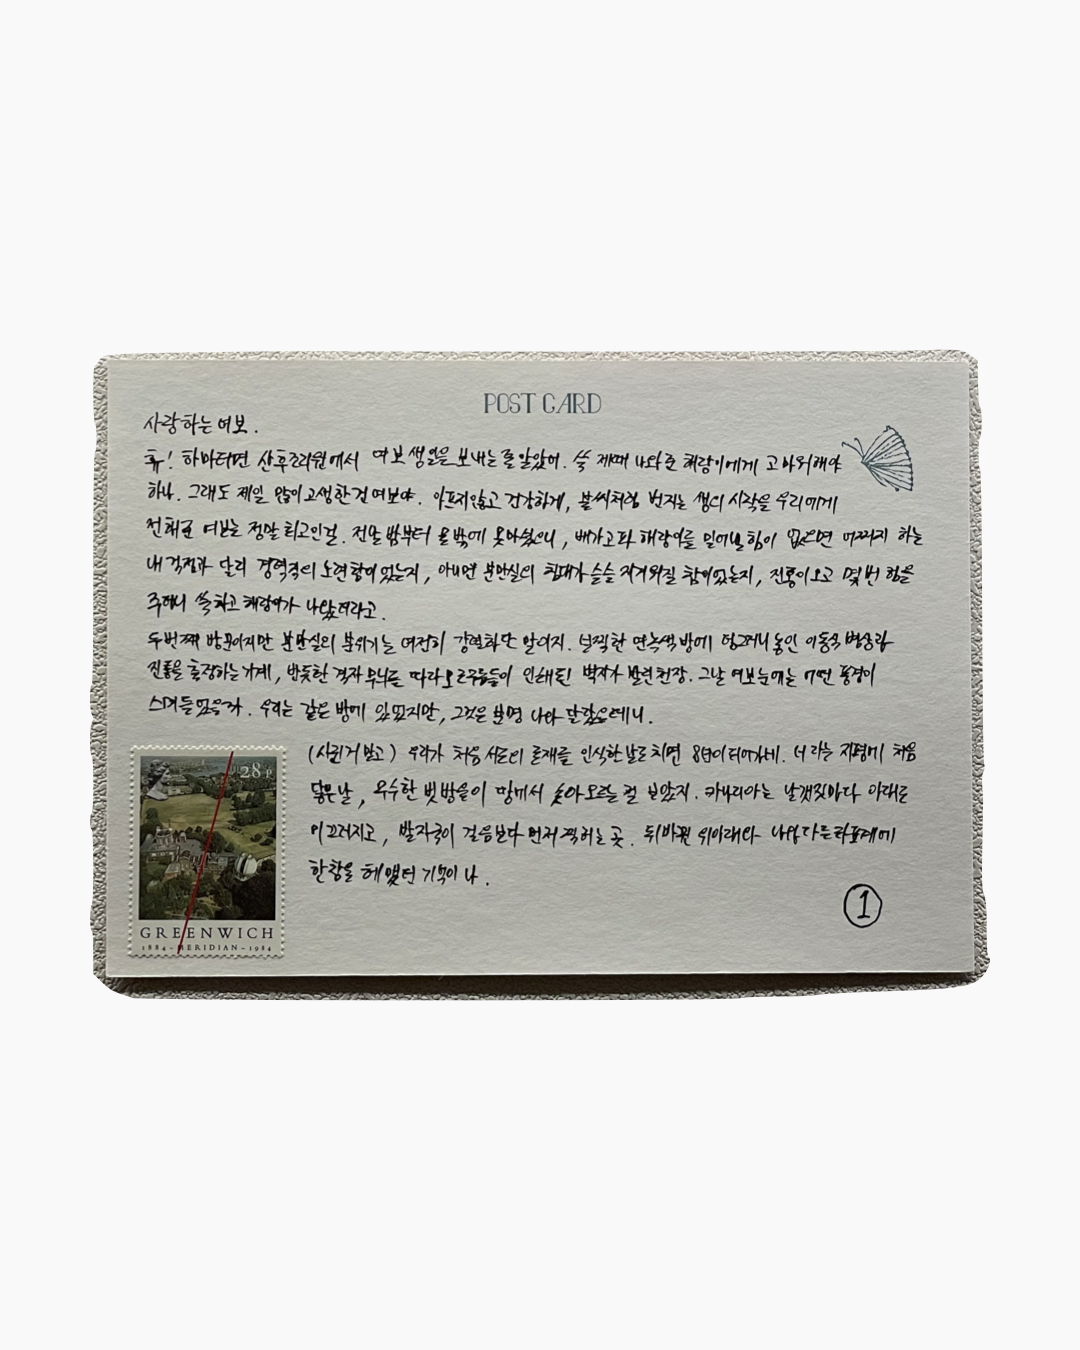 POST CARD
사랑하는 여보.
휴! 하마터면 산후조리원에서 여보 생일을 보내는 줄 알았어. 쏙 제때 나와준 해랑이에게 고마워해야
하나. 그래도 제일 많이 고생한 건 여보야. 아프지 않고 건강하게, 불씨처럼 번지는 생의 시작을 우리에게
전해준 여보는 정말 최고인걸. 전날 밤부터 물밖에 못 마셨으니, 배가 고파 해랑이를 밀어낼 힘이 없으면 어쩌지 하는
내 걱정과 달리 경력직의 노련함이 있는지, 아니면 분만실의 침대가 슬슬 지겨워질 참이었는지, 진통이 오고 몇 번 힘을
주더니 쏙 하고 해랑이가 나왔더라고.
두번째 방문이지만 분만실의 분위기는 여전히 강렬하단 말이지. 널찍한 연녹색 방에 덩그러니 놓인 이동식 병상과
진통을 측정하는 기계, 반듯한 격자 무늬를 따라 오르구름들이 인쇄된 벽지가 발린 천장. 그날 여보 눈에는 어떤 풍경이
스며들었을까. 우리는 같은 방에 있었지만, 그것은 분명 나와 달랐을테니.
(시킨거 말고) 우리가 처음 서로의 존재를 인식한 날로 치면 8년이 되어가네. 너라는 지평에 처음
닿은 날, 무수한 빗방울이 땅에서 솟아오르는 걸 보았지. 카나리아는 날갯짓마다 아래로
이끄러지고, 발자국이 걸음보다 먼저 찍히는 곳. 뒤바뀐 위아래와 나와 다른 좌표계에
한참을 헤맸던 기억이 나.
28p
GREENWICH
1884-MERIDIAN-1984
1